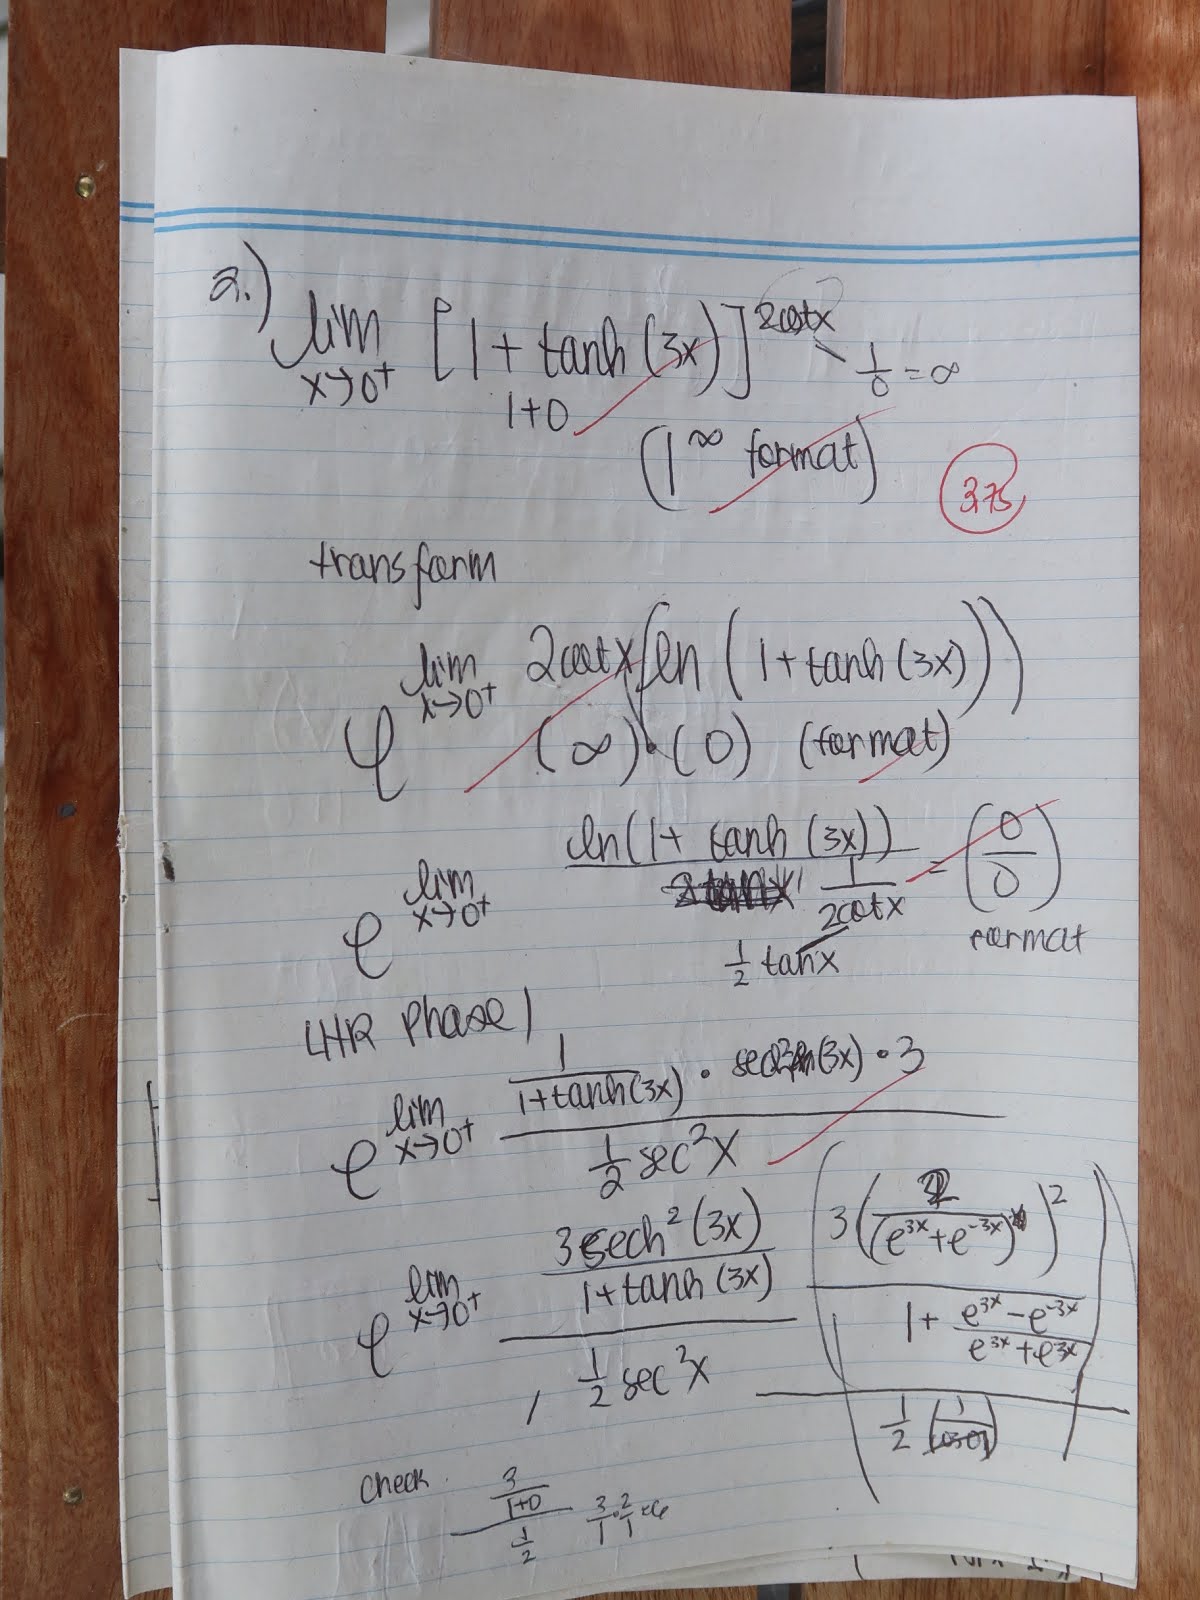 2.) lim x→0⁺ [1 + tanh (3x)]^2cotx
1+0
1/0 = ∞
(1^∞ format)
3.75
transform
e^ lim x→0⁺ 2cotx (ln (1 + tanh (3x)))
(∞) · (0) (format)
e^ lim x→0⁺ ln(1 + tanh (3x)) / (1/2cotx) = (0/0)
format
1/2 tanx
LHR Phase 1
e^ lim x→0⁺ (1/(1+tanh(3x)) · sech²(3x) · 3) / (1/2 sec²x)
e^ lim x→0⁺ (3sech² (3x) / (1 + tanh (3x))) / (1/2 sec²x)
(3(2/(e^3x + e^-3x))² / (1 + (e^3x − e^-3x)/(e^3x + e^3x))) / (1/2
check (3/(1+0)) / (1/2) 3/1 · 2/1 = 6